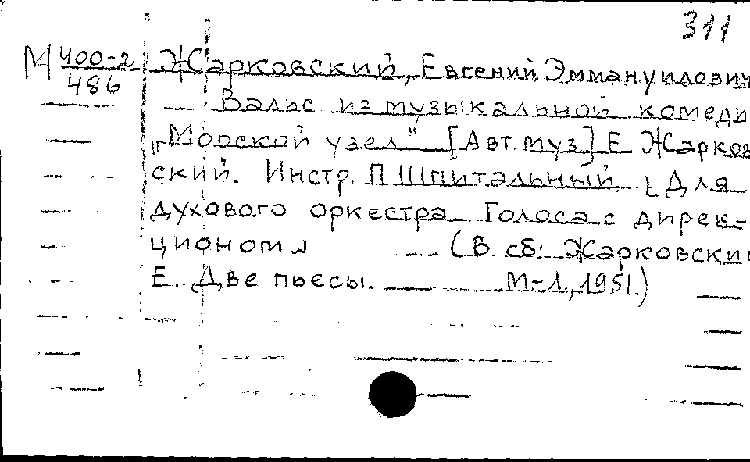 311
М 400-2 Жарковский, Евгений Эммануилович
486
Вальс из музыкальной комеди
„Морской узел" [Авт. муз] Е Жарков
ский. Инстр. П Шпитальный [Для
духового оркестра Голоса с дирек-
ционом] (В сб: Жарковский
Е. Две пьесы. М-Л, 1951.)